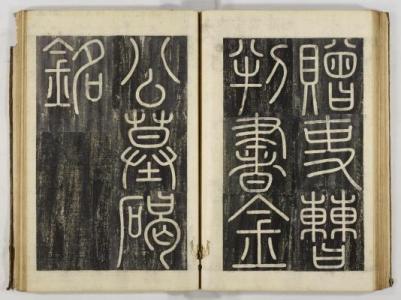 贈吏曹
判書金
公墓碣
銘